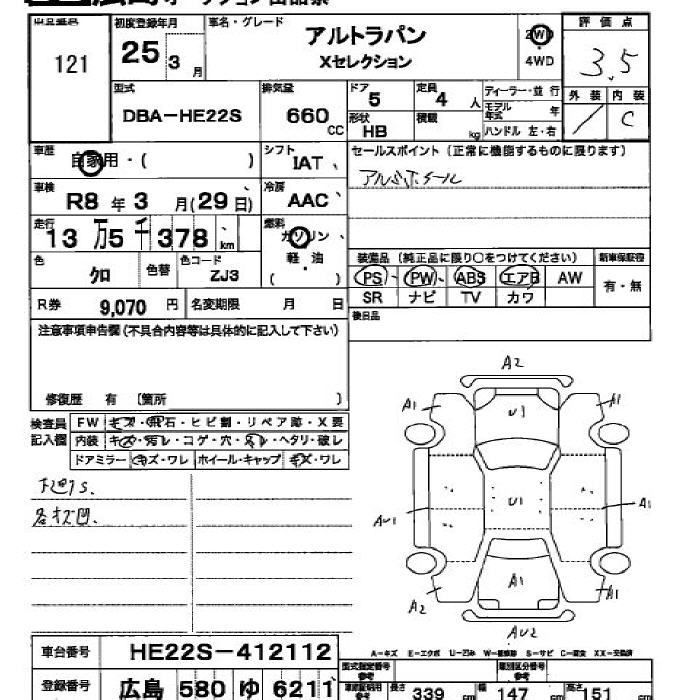 広島オークション出品票
出品番号
121
初度登録年月
25 3 月
車名・グレード
アルトラパン
Xセレクション
2WD
4WD
評価点
3.5
外装 内装
C
型式
DBA-HE22S
排気量
660 CC
ドア
5
定員
4 人
形状
HB
積載
kg
ディーラー・並行
モデル年式 年
ハンドル 左・右
車歴
自家用・( )
シフト
IAT
車検
R8 年 3 月(29日)
冷房
AAC
走行
13万5千378 km
燃料
ガソリン
軽・油
( )
色
クロ
色替
色コード
ZJ3
R券 9,070 円
名変期限 月 日
セールスポイント (正常に機能するものに限ります)
アルミホイール
装備品 (純正品に限り○をつけてください)
新車保証書
PS PW ABS エアB AW
SR ナビ TV カワ
有・無
後日品
注意事項申告欄(不具合内容等は具体的に記入して下さい)
修復歴 有 〔箇所 〕
検査員記入欄
FW キズ・飛石・ヒビ割・リペア跡・X要
内装 キズ・汚レ・コゲ・穴・スレ・ヘタリ・破レ
ドアミラー キズ・ワレ ホイール・キャップ キズ・ワレ
下廻りS.
各オズ凹.
A2
A1
A1
U1
AU1
U1
A1
A1
A2
A1
AU2
A-キズ E-エクボ U-凹み W-補修跡 S-サビ C-腐食 XX-交換済
車台番号 HE22S-412112
登録番号 広島 580 ゆ 6211
型式指定番号 参考
類別区分番号 参考
長さ 339 幅 147 高さ 151